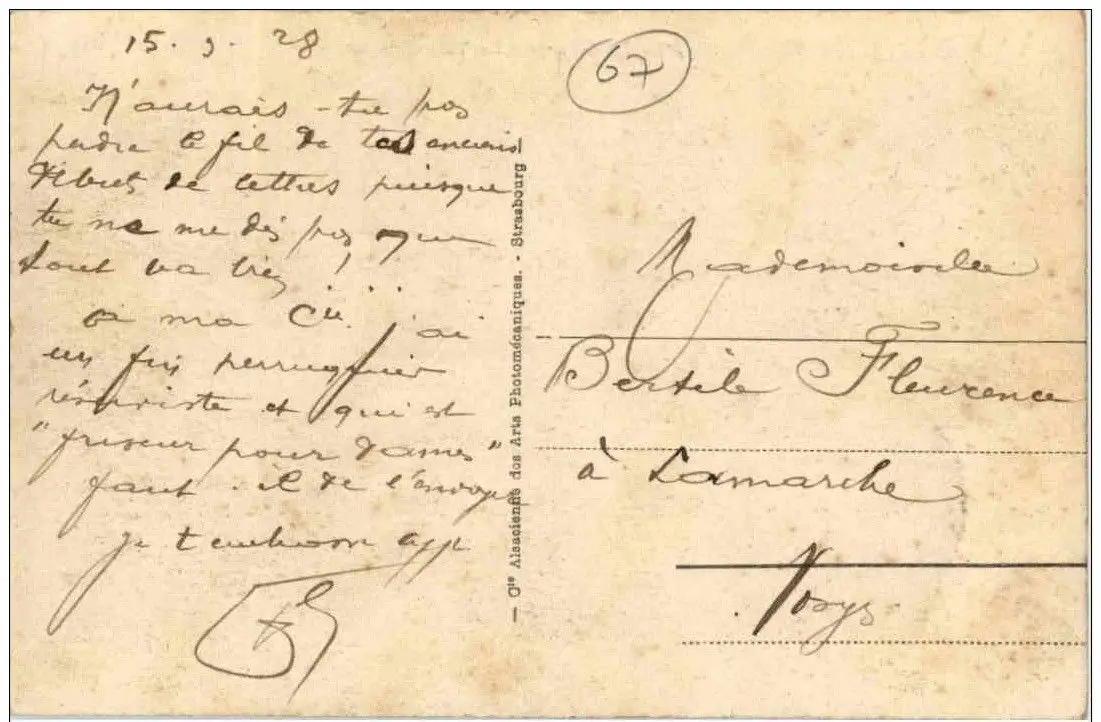 15. 9. 28
N'aurais-tu pas
perdre le fil de tes anciens
de lettres puisque
tu ne me dis pas que
tout va très !
à ma Cie j'ai
un fin perruquier
réserviste et qui est
"friseur pour dames"
faut-il de l'envoyer
Je t'embrasse aff
67
Mademoiselle
Bertile Fleurence
à Lamarche
Vosges
— Cie Alsacienne des Arts Photomécaniques. - Strasbourg